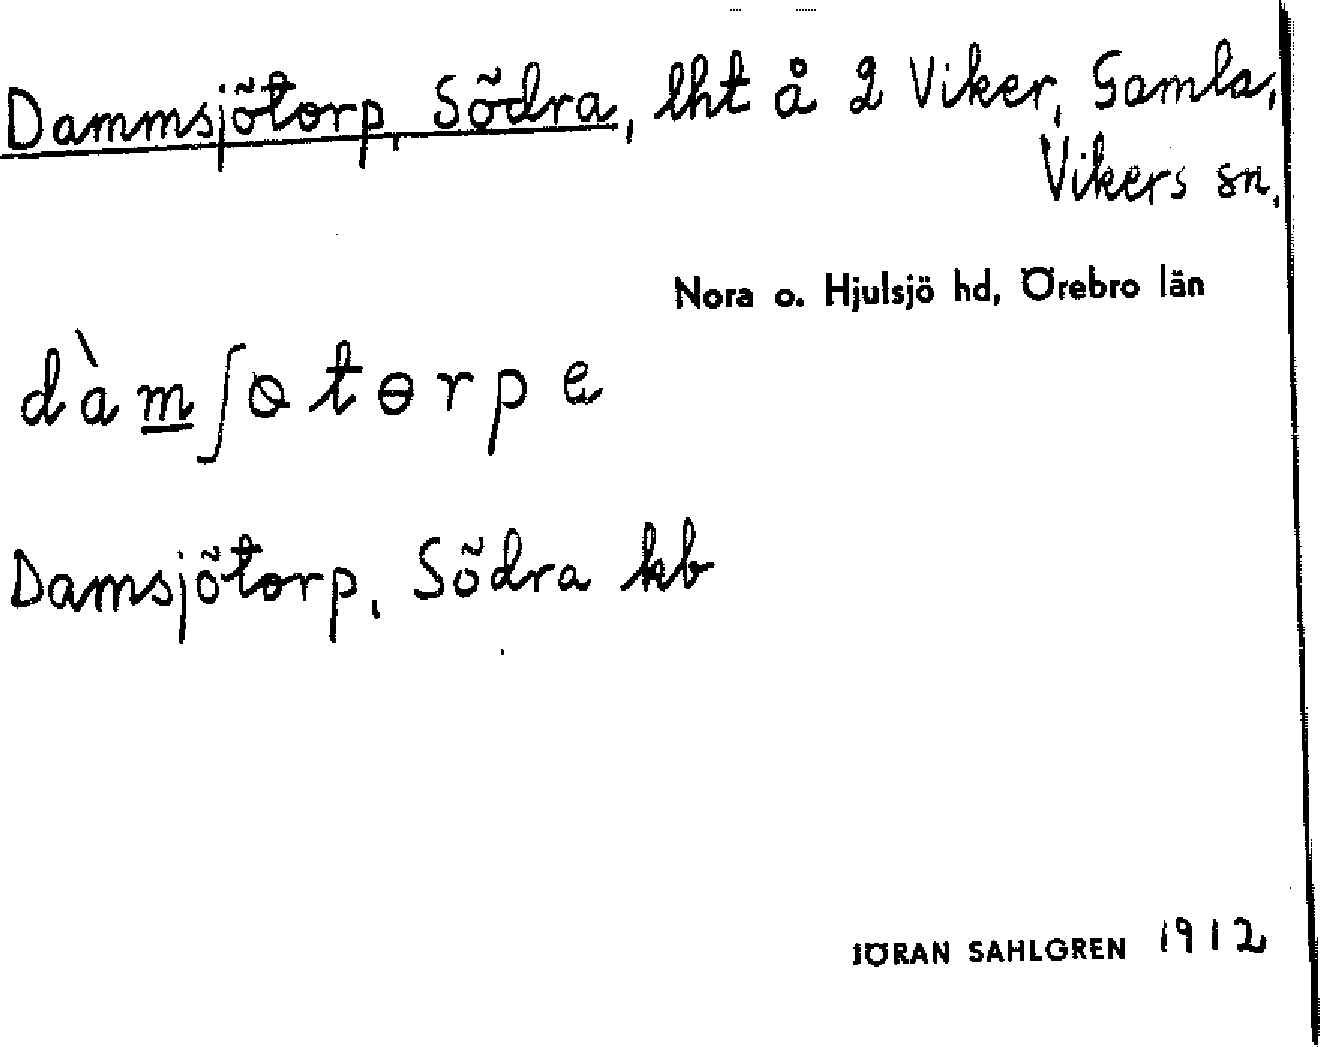 Dammsjötorp, Södra, lht å 2 Viker, Gamla,
Vikers sn,
Nora o. Hjulsjö hd, Örebro län
dàmʃɵtɵrpe
Damsjötorp, Södra kb
JÖRAN SAHLGREN 1912